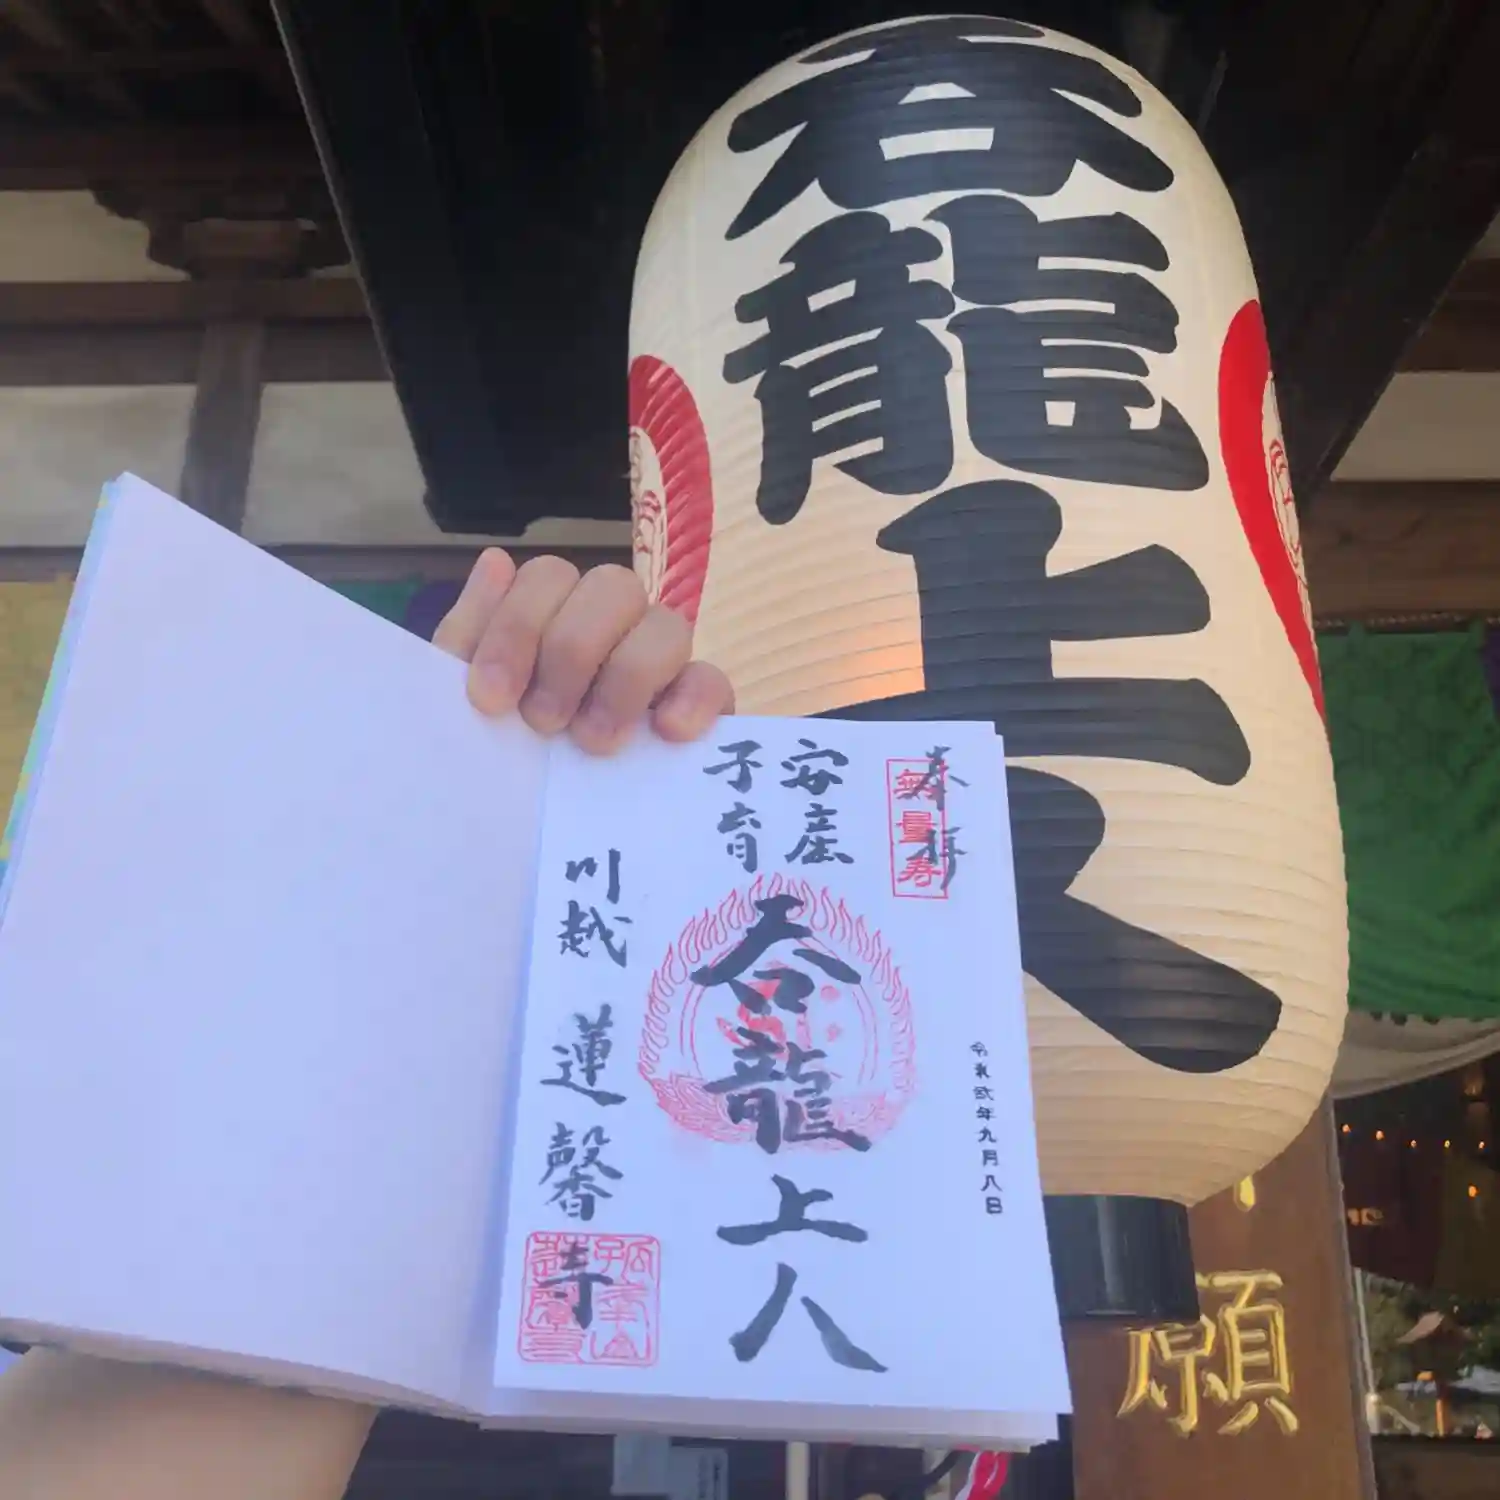 呑龍上人
奉拝
無量寿
令和弐年九月八日
安産
子育
呑龍上人
川越 蓮馨寺
願